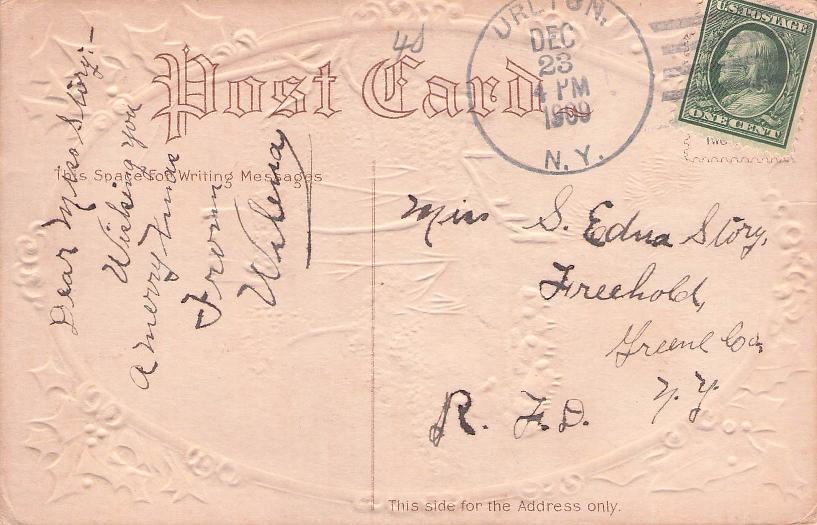 Post Card
48
URLTON,
DEC
23
4 PM
1909
N. Y.
U.S. POSTAGE
ONE CENT
This Space For Writing Messages
Dear Miss Story:-
Wishing you
a merry Xmas
From
Wilena
Miss S. Edna Story,
Freehold,
Greene Co.
N. Y.
R. F. D.
This side for the Address only.